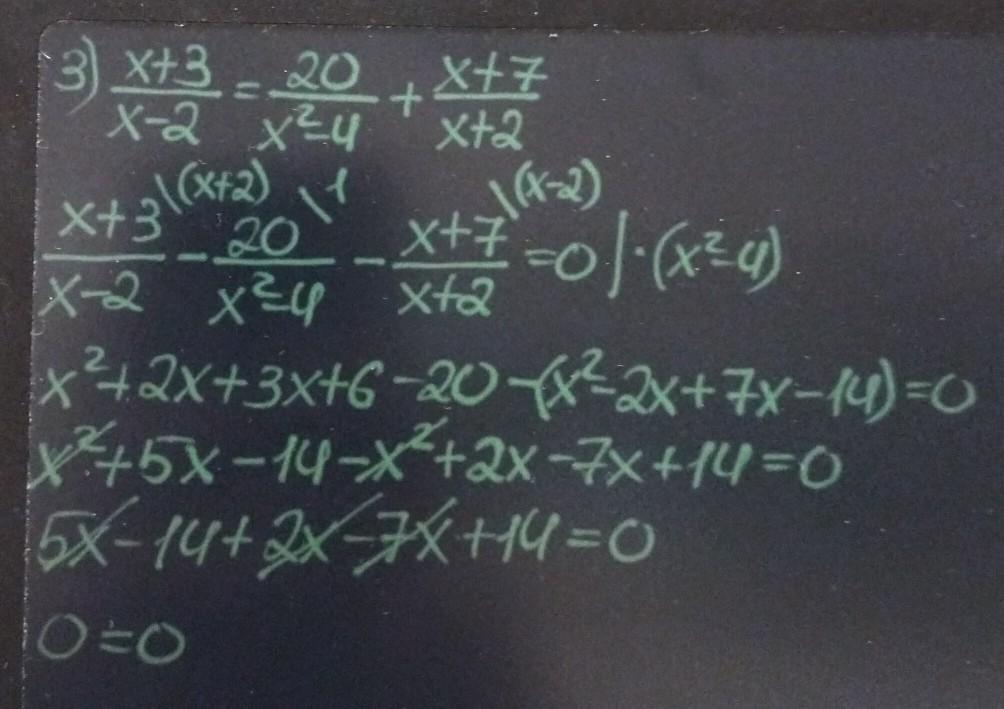 3) x+3/x-2 = 20/x²-4 + x+7/x+2
x+3/x-2 \(x+2) - 20/x²-4 \1 - x+7/x+2 \(x-2) =0 | ·(x²-4)
x²+2x+3x+6-20-(x²-2x+7x-14)=0
x²+5x-14-x²+2x-7x+14=0
5x-14+2x-7x+14=0
0=0